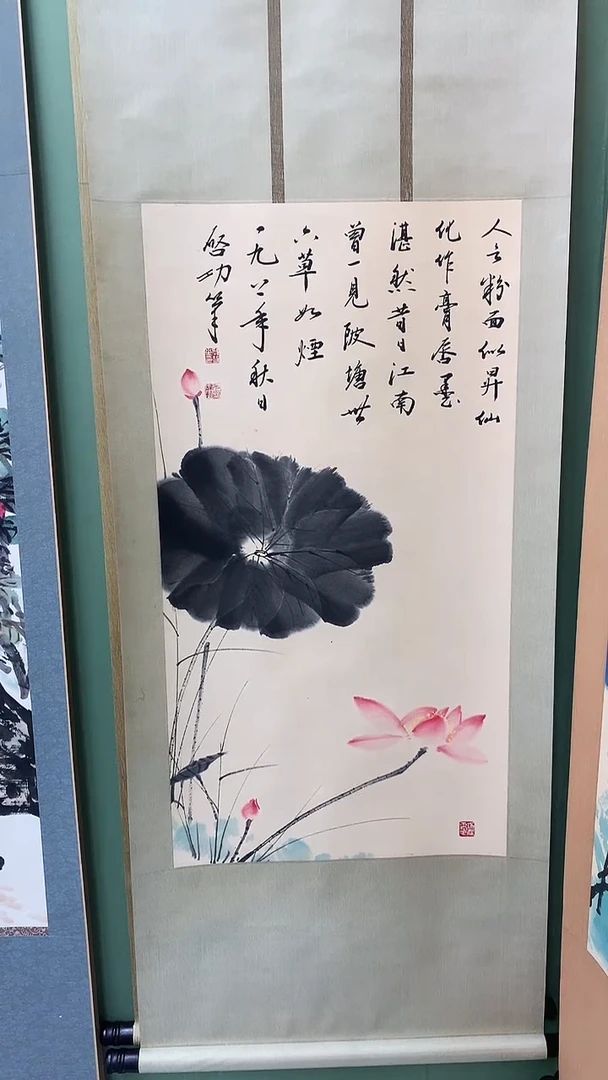 人言粉面似昇仙
化作膏唇墨
湛然昔日江南
曾一見陂塘卅
六草如煙
一九八二年秋日
啓功筆